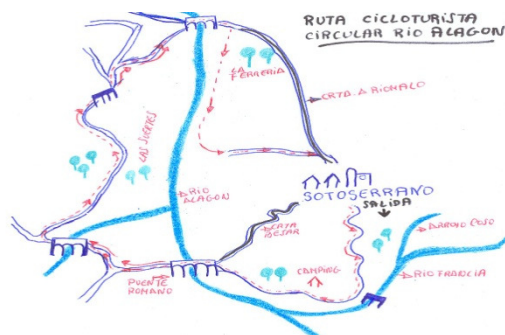 RUTA CICLOTURISTA
CIRCULAR RIO ALAGON
LA
FERRERIA
CRTA. A RIOMALO
LAS SUERTES
RIO
ALAGON
SOTOSERRANO
SALIDA
CRTA
BEJAR
ARROYO COSO
CAMPING
RIO FRANCIA
PUENTE
ROMANO